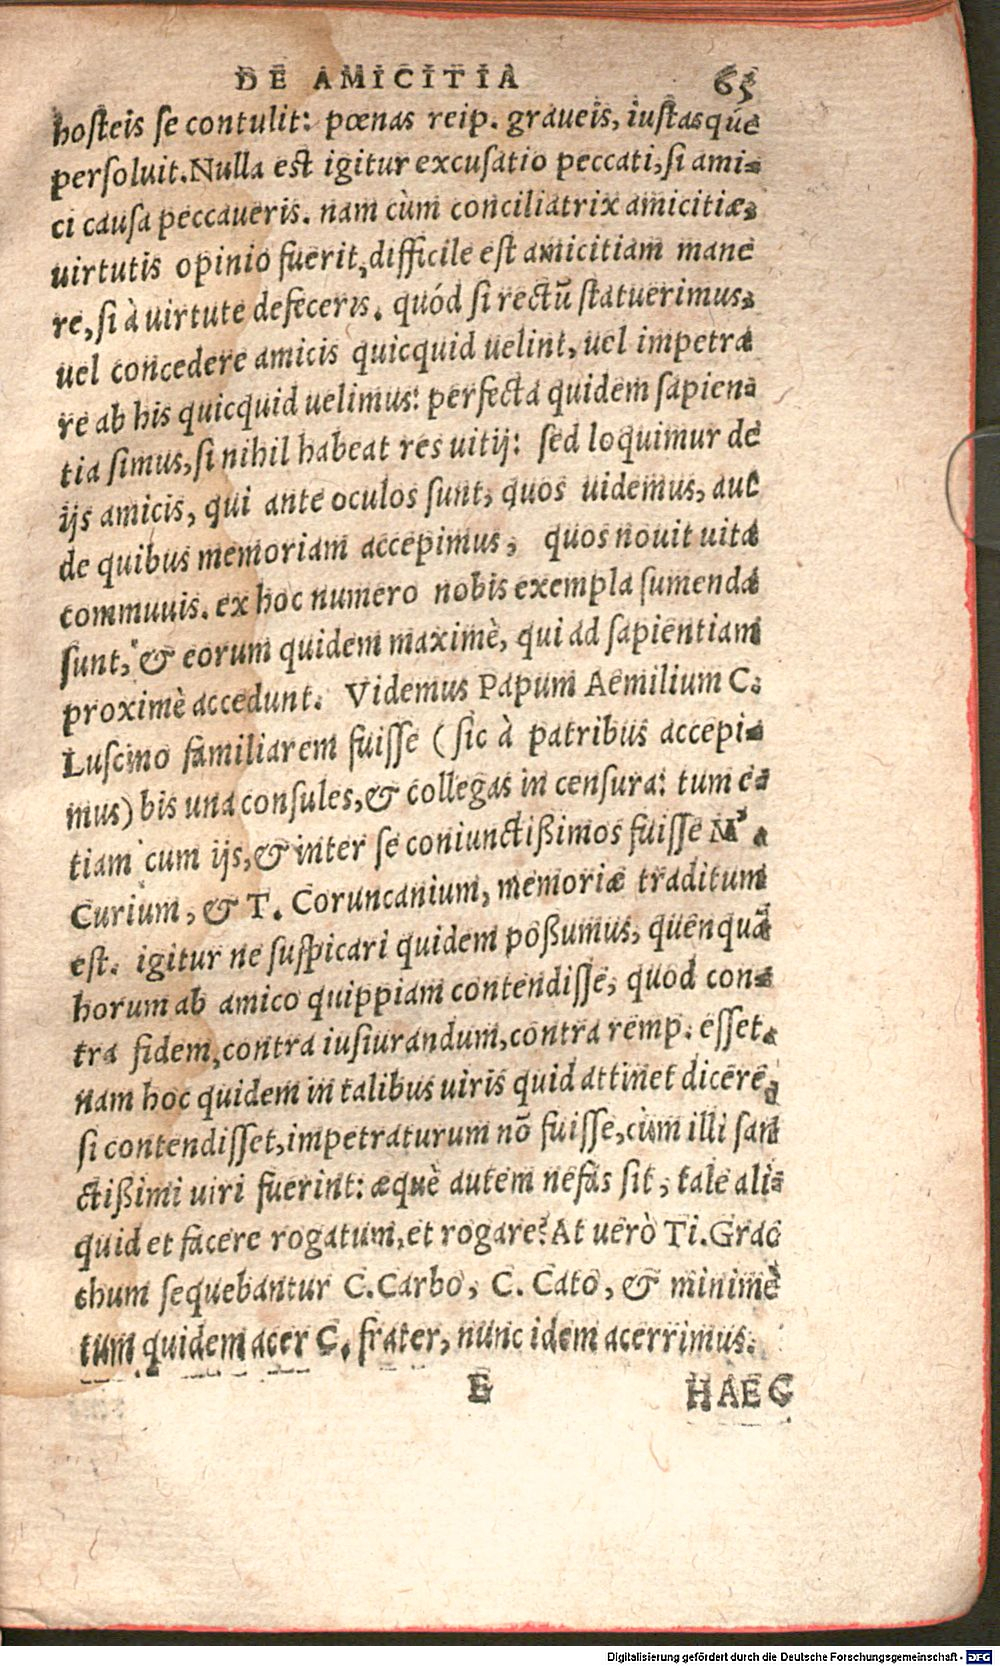 DE AMICITIA 65
hosteis se contulit: pœnas reip. graueis, iustasque
persoluit. Nulla est igitur excusatio peccati, si ami-
ci causa peccaueris. nam cùm conciliatrix amicitiæ,
uirtutis opinio fuerit, difficile est amicitiam mane
re, si à uirtute defeceris. quód si rectū statuerimus,
uel concedere amicis quicquid uelint, uel impetra
re ab his quicquid uelimus: perfecta quidem sapien-
tia simus, si nihil habeat res uitij: sed loquimur de
ijs amicis, qui ante oculos sunt, quos uidemus, aut
de quibus memoriam accepimus, quos nouit uita
commuuis. ex hoc numero nobis exempla sumenda
sunt, & eorum quidem maximè, qui ad sapientiam
proximè accedunt. Videmus Papum Aemilium C.
Luscino familiarem fuisse (sic à patribus accepi-
mus) bis una consules, & collegas in censura: tum e-
tiam cum ijs, & inter se coniunctißimos fuisse M'.
Curium, & T. Coruncanium, memoriæ traditum
est. igitur ne suspicari quidem poßumus, quenquā
horum ab amico quippiam contendisse, quod con-
tra fidem, contra iusiurandum, contra remp. esset.
nam hoc quidem in talibus uiris quid attinet dicere,
si contendisset, impetraturum nō fuisse, cùm illi san
ctißimi uiri fuerint: æquè autem nefas sit, tale ali-
quid et facere rogatum, et rogare? At uerò Ti. Grac
chum sequebantur C. Carbo, C. Cato, & minimè
tum quidem acer C. frater, nunc idem acerrimus.
E HAEC
Digitalisierung gefördert durch die Deutsche Forschungsgemeinschaft - DFG